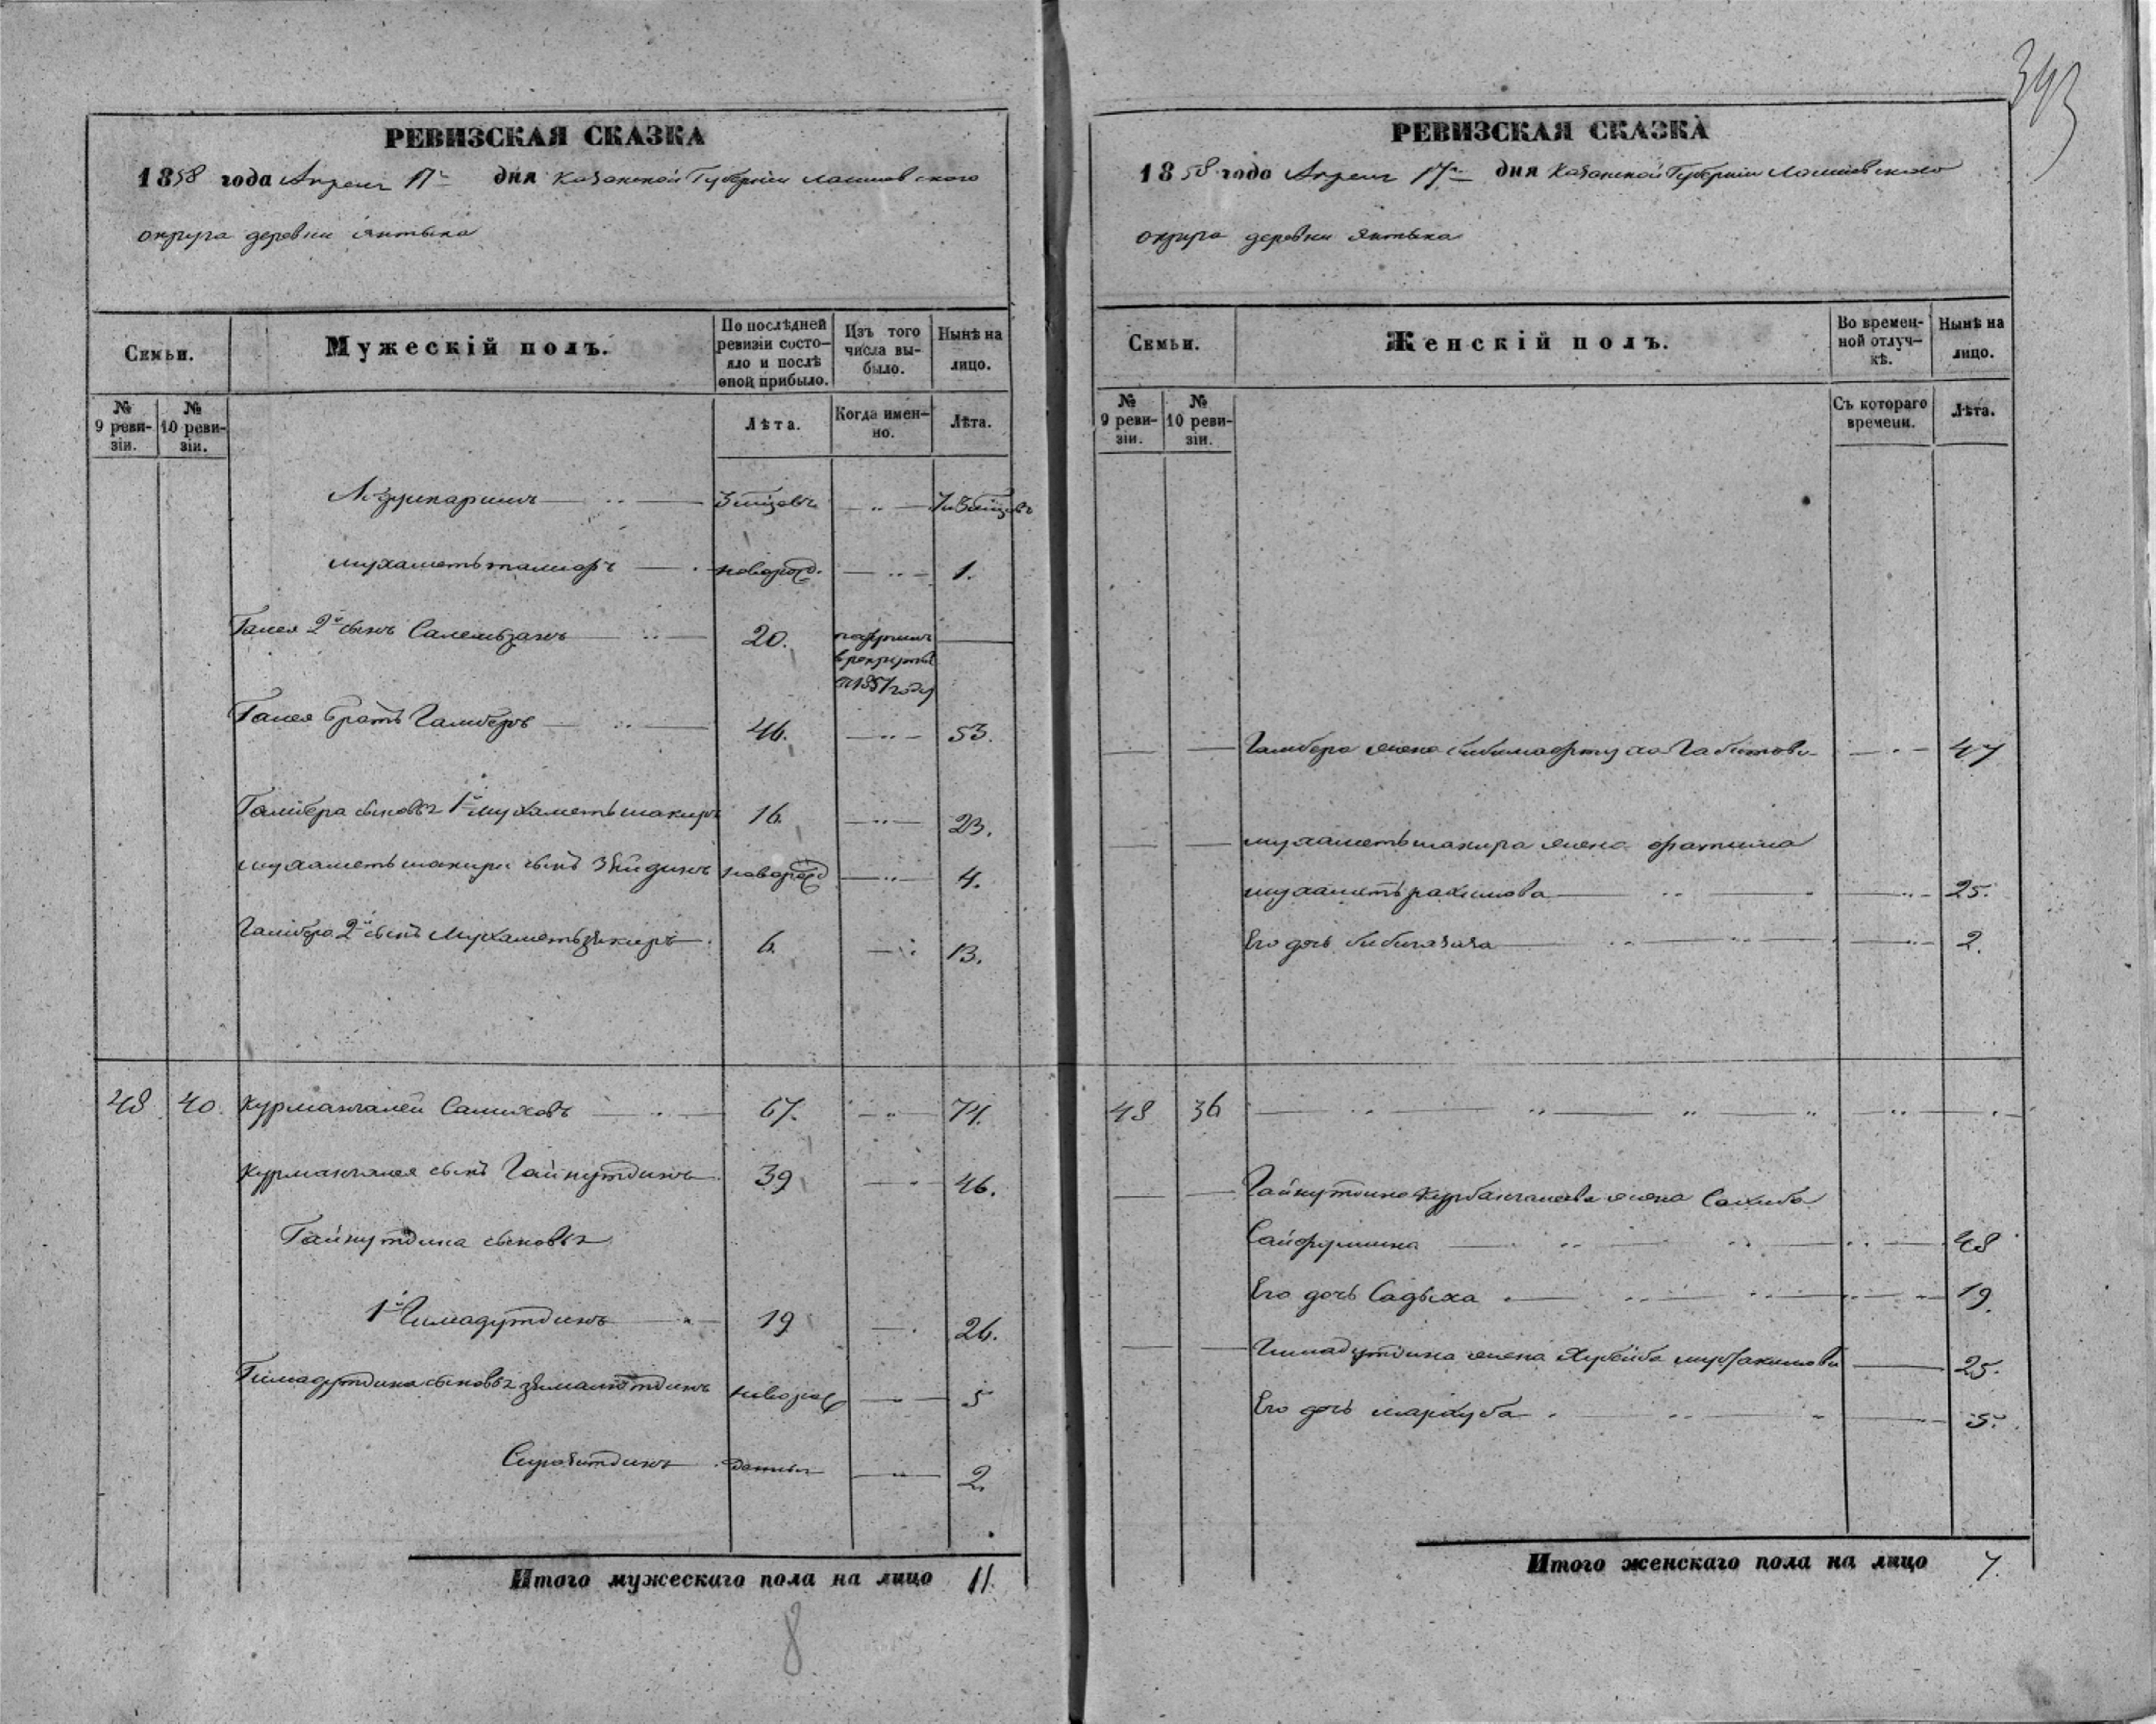 393
РЕВИЗСКАЯ СКАЗКА
1858 года Апреля 17го дня Казанской Губернии Лаишевского
округа деревни Янтыка
Семьи.
Мужескій полъ.
По послѣдней
ревизіи состо-
яло и послѣ
оной прибыло.
Изъ того
числа вы-
было.
Нынѣ на
лицо.
№
9 реви-
зіи.
№
10 реви-
зіи.
Лѣта.
Когда имен-
но.
Лѣта.
3 месяцовъ 7 и 3 месяцовъ
новорожд. 1.
Галея 2й сынъ Салемьзянъ 20.
в рекруты
в 1857 году
Галея братъ Галиберъ 46. 53.
Галибера сыновья 1й Мухаметьшакиръ 16 23.
Мухаметьшакира сынъ Зейдинъ новорожд 4.
Галибера 2й сынъ Мухаметьзякиръ 6. 13.
48 40. Курмангалей Салиховъ 67. 74.
Курмангалея сынъ Гайнутдинъ 39 46.
Гайнутдина сыновья
1й Гимадутдинъ 19 26.
Гимадутдина сыновья новорож 5
2.
Итого мужескаго пола на лицо 11.
8
РЕВИЗСКАЯ СКАЗКА
1858 года Апреля 17го дня Казанской Губернии Лаишевского
округа деревни Янтыка
Семьи.
Женскій полъ.
Во времен-
ной отлуч-
кѣ.
Нынѣ на
лицо.
№
9 реви-
зіи.
№
10 реви-
зіи.
Съ котораго
времени.
Лѣта.
Галибера жена Габитова 47
Мухаметьшакира жена Фатима
Мухаметьрахимова 25.
Его дочь 2.
48 36
Гайнутдина Курбангалеева жена Сахиба
Сайфуллина 48
Его дочь Садыха 19.
Гимадутдина жена Хубейба 25.
Его дочь Мархуба 5.
Итого женскаго пола на лицо 7.